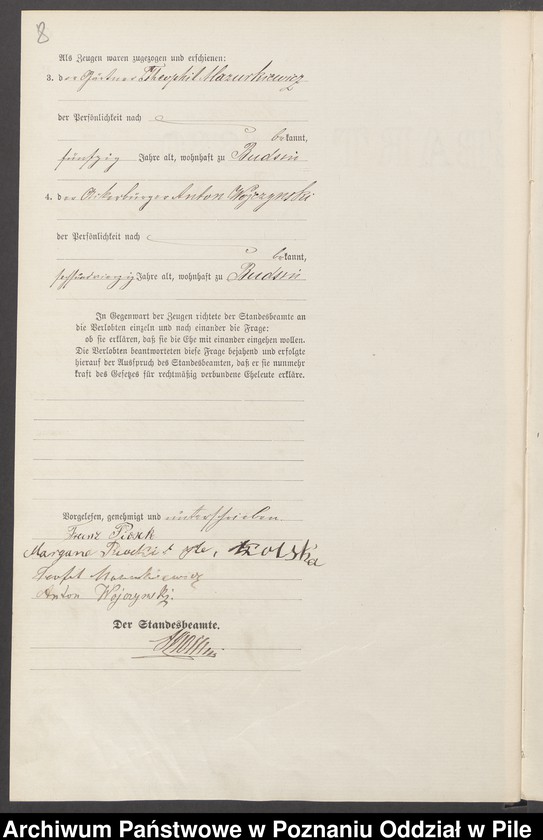 8
Als Zeugen waren zugezogen und erschienen:
3. der Gärtner Theophil Mazurkiewicz
der Persönlichkeit nach
bekannt,
fünfzig Jahre alt, wohnhaft zu Budsin
4. der Ackerbürger Anton Wojczynski
der Persönlichkeit nach
bekannt,
sechsundvierzig Jahre alt, wohnhaft zu Budsin
In Gegenwart der Zeugen richtete der Standesbeamte an
die Verlobten einzeln und nach einander die Frage:
ob sie erklären, daß sie die Ehe mit einander eingehen wollen.
Die Verlobten beantworteten diese Frage bejahend und erfolgte
hierauf der Ausspruch des Standesbeamten, daß er sie nunmehr
kraft des Gesetzes für rechtmäßig verbundene Eheleute erkläre.
Vorgelesen, genehmigt und unterschrieben
Franz
Teofil Mazurkiewicz
Anton Wojczynski.
Der Standesbeamte.
Archiwum Państwowe w Poznaniu Oddział w Pile